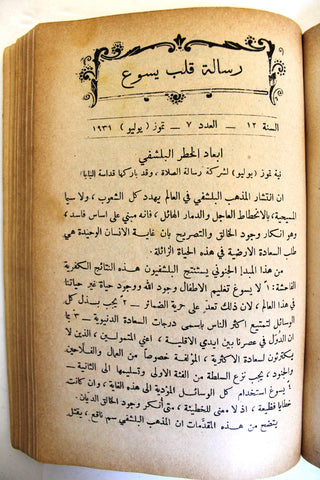 رسالة قلب يسوع
السنة ١٢ — العدد ٧ — تموز (يوليو) ١٩٣١
ابعاد الخطر البلشفي
نية تموز (يوليو) لشركة رسالة الصلاة، وقد باركها قداسة البابا)
ان انتشار المذهب البلشفي في العالم يهدد كل الشعوب، ولا سيما
المسيحية، بالانحطاط العاجل والدمار الهائل، فانه مبني على اساس فاسد،
وهو انكار وجود الخالق والتصريح بان غاية الانسان الوحيدة هي
طلب السعادة الارضية في هذه الحياة الزائلة.
من هذا المبدإ الجنوني يستنتج البلشفيون هذه النتائج الكفرية
الفاحشة: ١ً لا يسوغ تعليم الاطفال وجود الله ووجود حياة غير حياتنا
في هذا العالم، لان ذلك تعدّ على حرية الضمائر — ٢ً يجب بذل كل
الوسائل لتمتيع اكثر الناس باسمى درجات السعادة الدنيوية — ٣ً بما
ان الدُوَل في عصرنا بين ايدي الاقلية، اعني المتمولين، الذين لا
يكترثون لسعادة الاكثرية، المؤلفة خصوصاً من العمال والفلاحين
والجنود، يجب نزع السلطة من الفئة الاولى وتسليمها الى الثانية —
٤ً يسوغ استخدام كل الوسائل المؤدية الى هذه الغاية، وان كانت
خطايا فظيعة، اذ لا معنى للخطيئة، متى أُنكر وجود الخالق الديان.
يتضح من هذه المقدَّمات ان المذهب البلشفي سم ناقع، يقتل